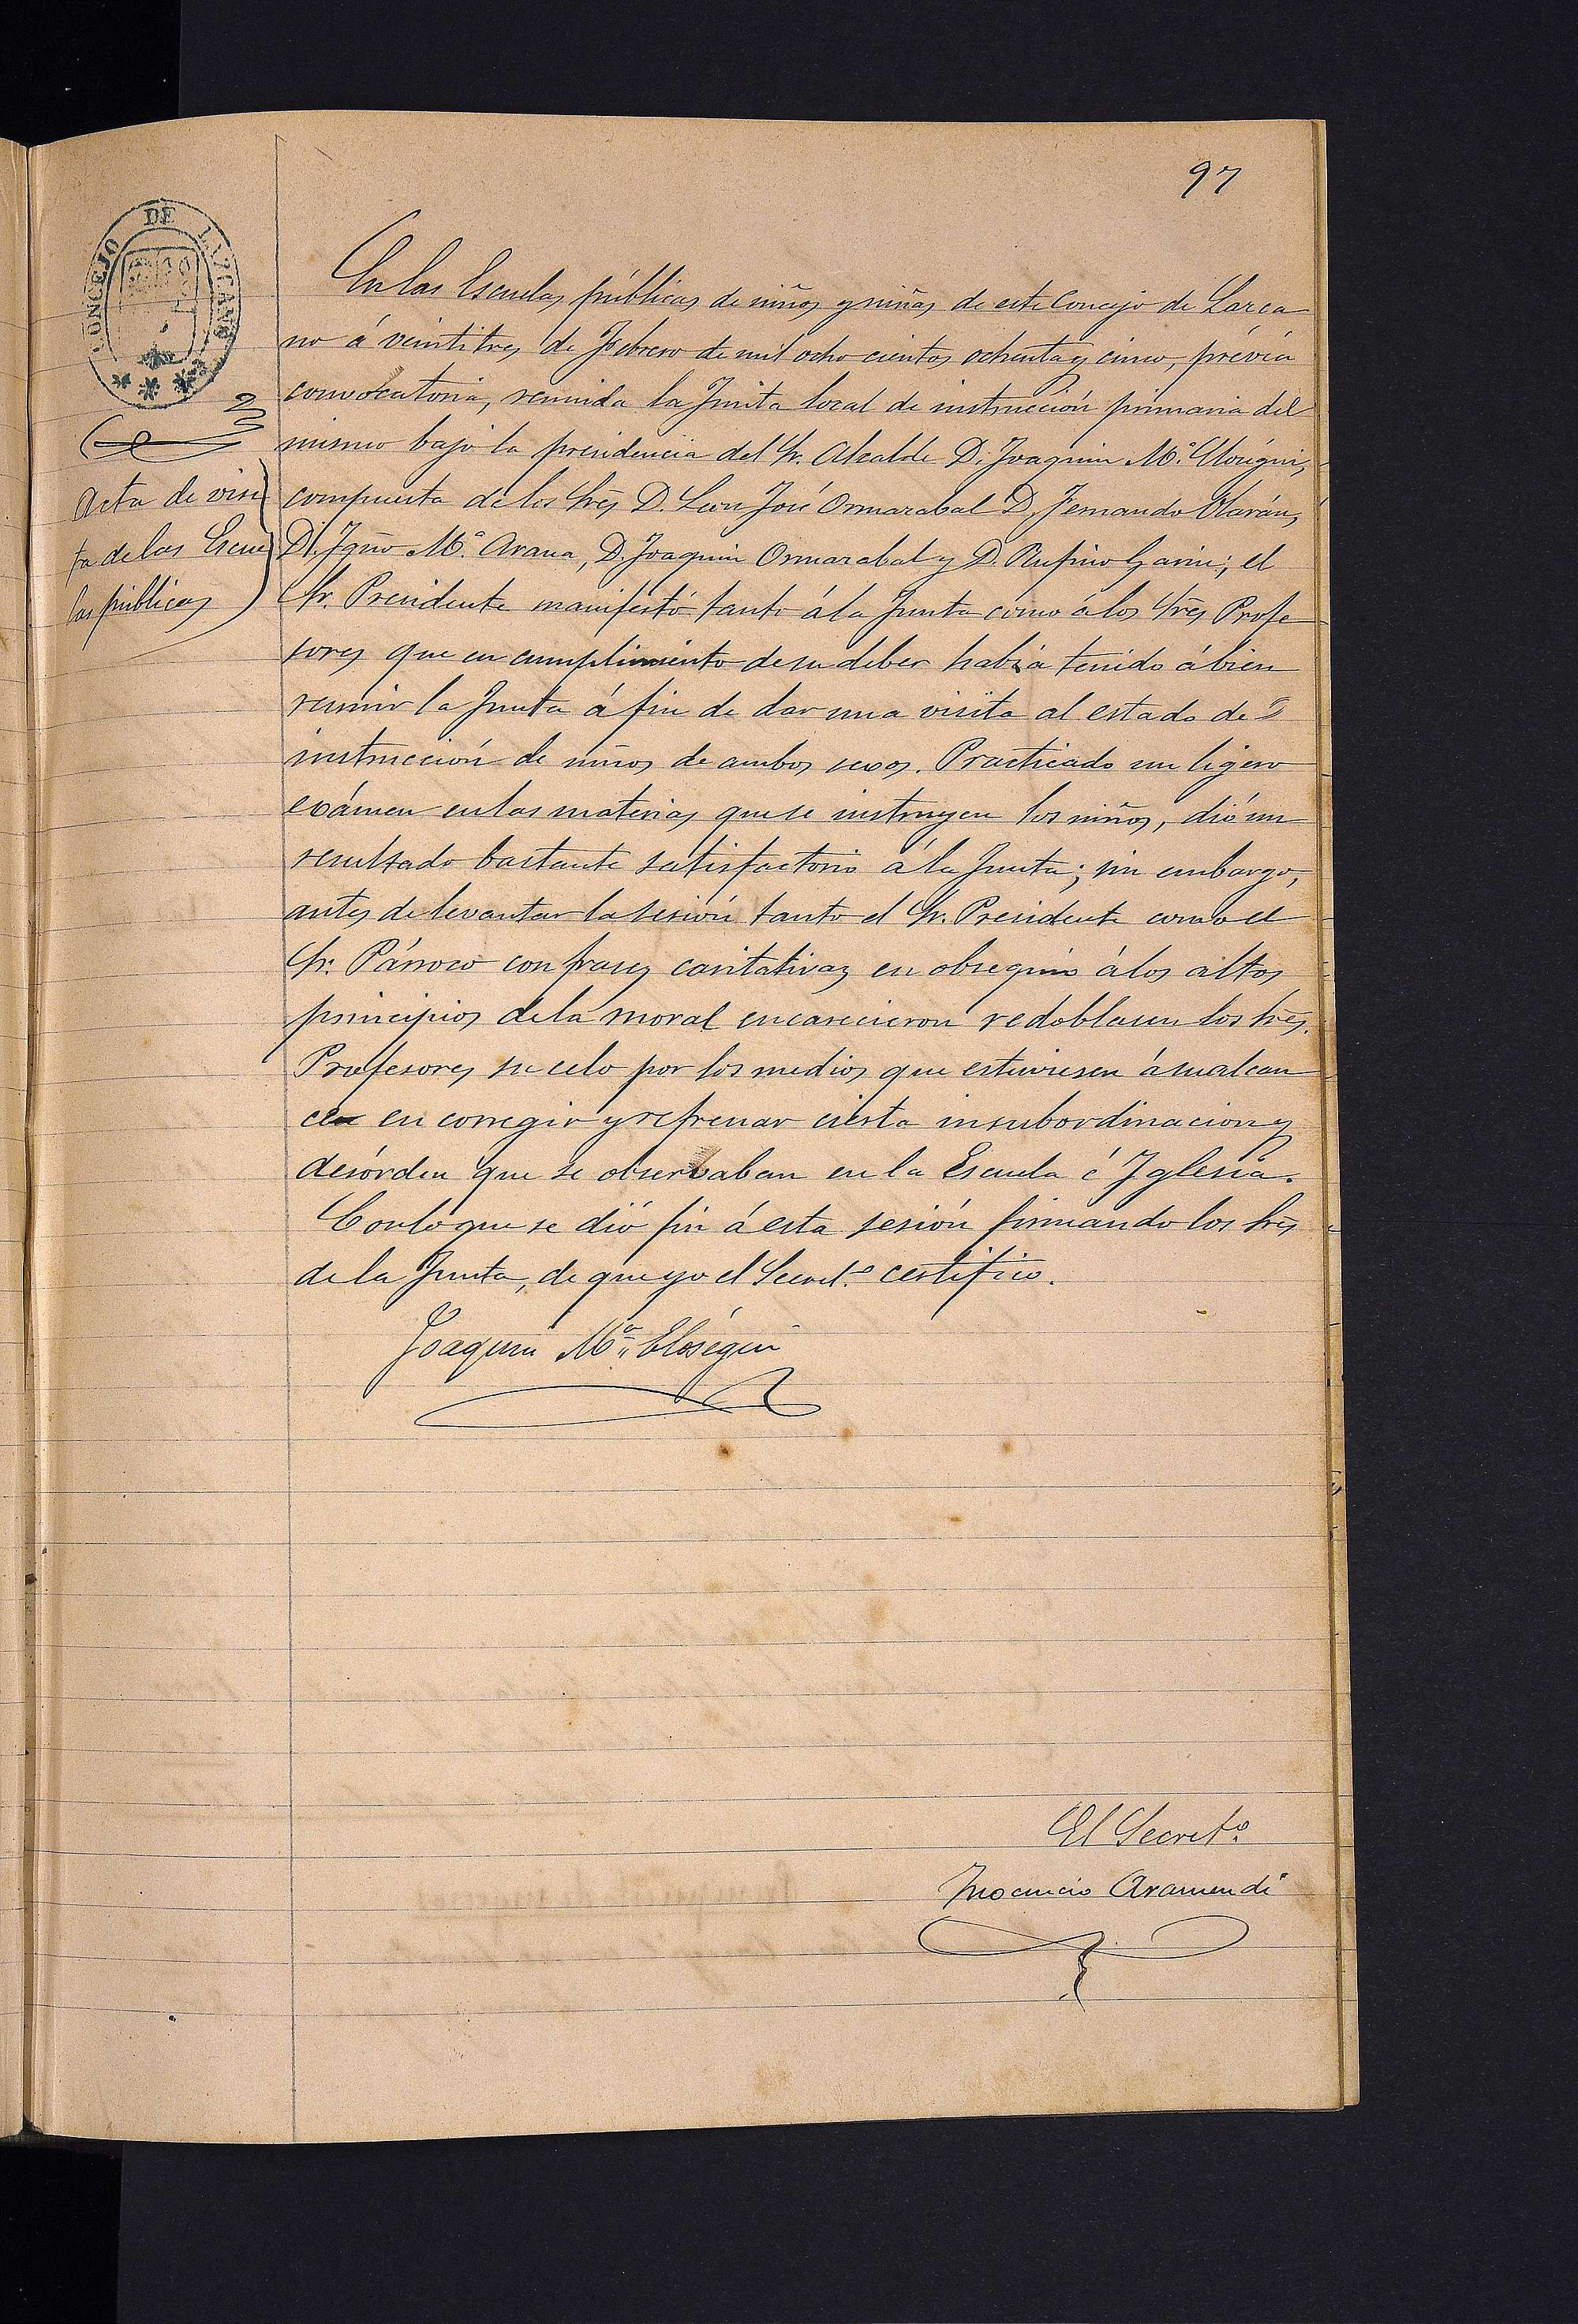 97
CONCEJO DE LAZCANO
Acta de visi
ta de las Escue
las públicas
En las Escuelas públicas de niños y niñas de este Concejo de Larca
no á veintitres de Febrero de mil ocho cientos ochenta y cinco, prévia
convocatoria, reunida la Junta local de instrucción primaria del
mismo bajo la presidencia del Sr. Alcalde D. Joaquin Mª. Elosigui,
compuesta de los Sres D. Leon José Ormazabal D. Fernando Olarán,
D. Igno Mª. Arana, D. Joaquin Ormazabal y D. Rufino Garin; el
Sr. Presidente manifestó tanto á la Junta como á los Sres Profe
sores que en cumplimiento de su deber había tenido á bien
reunir la Junta á fin de dar una visita al estado de
instrucción de niños de ambos sexos. Practicado un ligero
exámen en las materias que se instruyen los niños, dió un
resultado bastante satisfactorio á la Junta; sin embargo,
antes de levantar la sesión tanto el Sr. Presidente como el
Sr. Párroco con frases caritativas en obsequio á los altos
principios de la moral encarecieron redoblasen los Sres.
Profesores su celo por los medios que estuviesen á su alcan
ce en corregir y refrenar cierta insubordinacion y
desórden que se observaban en la Escuela é Iglesia.
Con lo que se dió fin á esta sesión firmando los Sres
de la Junta, de que yo el Secretº certifico.
Joaquin Mª Elosegui
El Secretº
Inocencio Aramendi